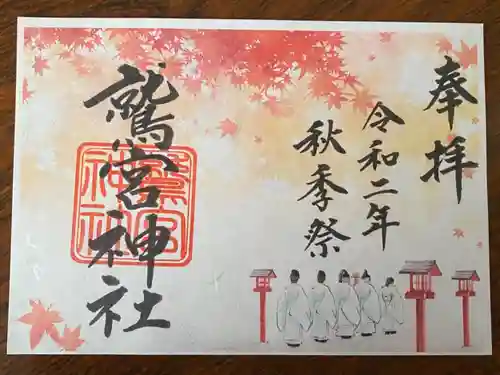 奉拝
令和二年
秋季祭
鷲宮神社
鷲宮神社